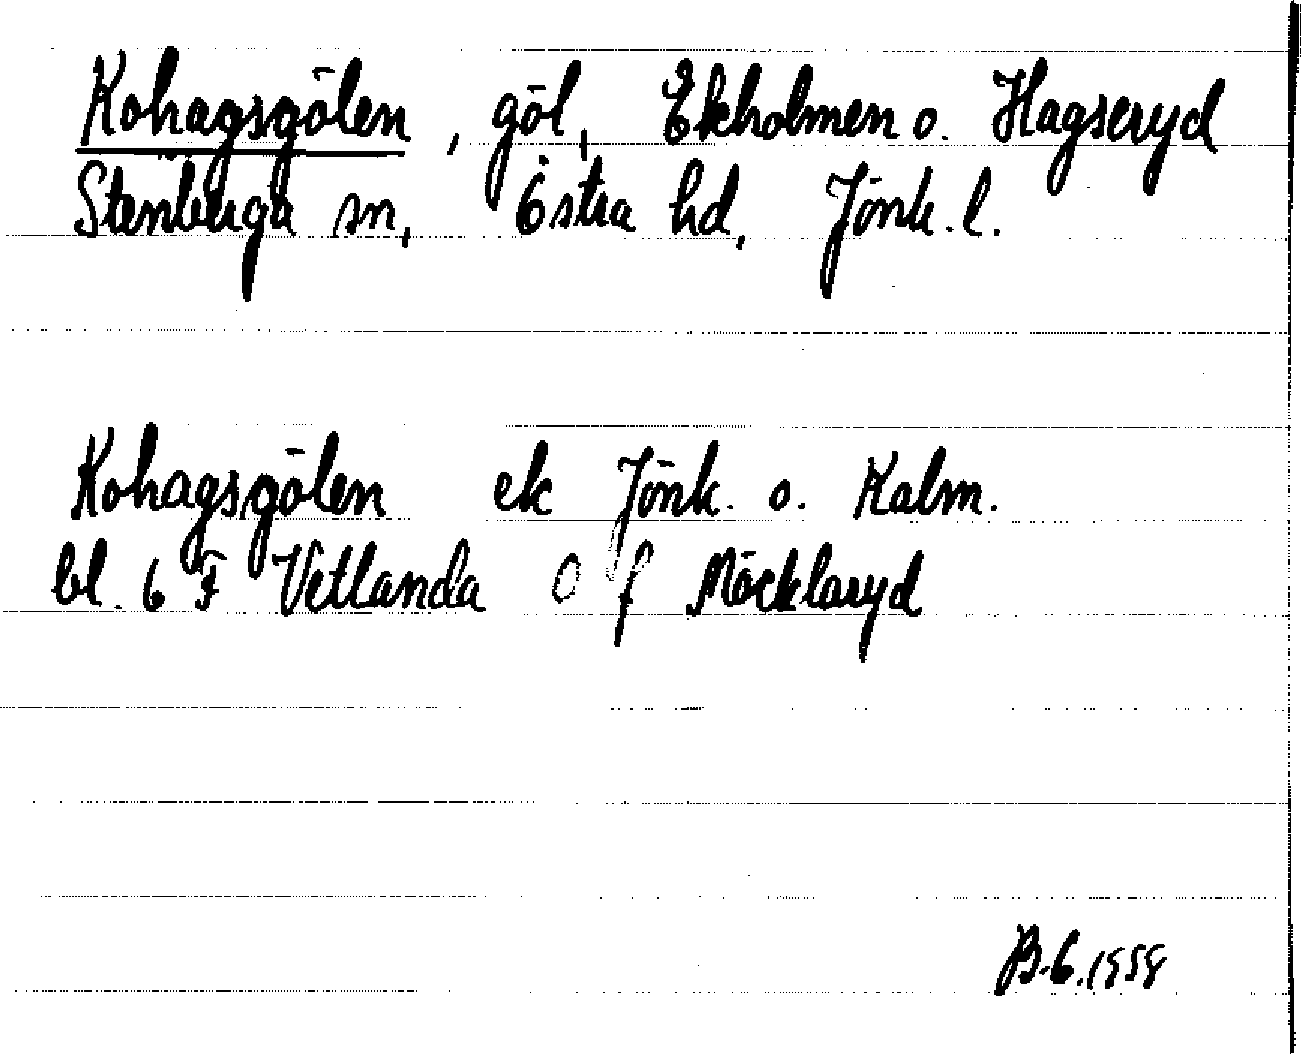 Kohagsgölen, göl, Ekholmen o. Hagseryd
Stenberga sn, Östra hd, Jönk. l.
Kohagsgölen ek Jönk. o. Kalm.
bl. 6 F Vetlanda 0 f Möcklaryd
B.G. 1958